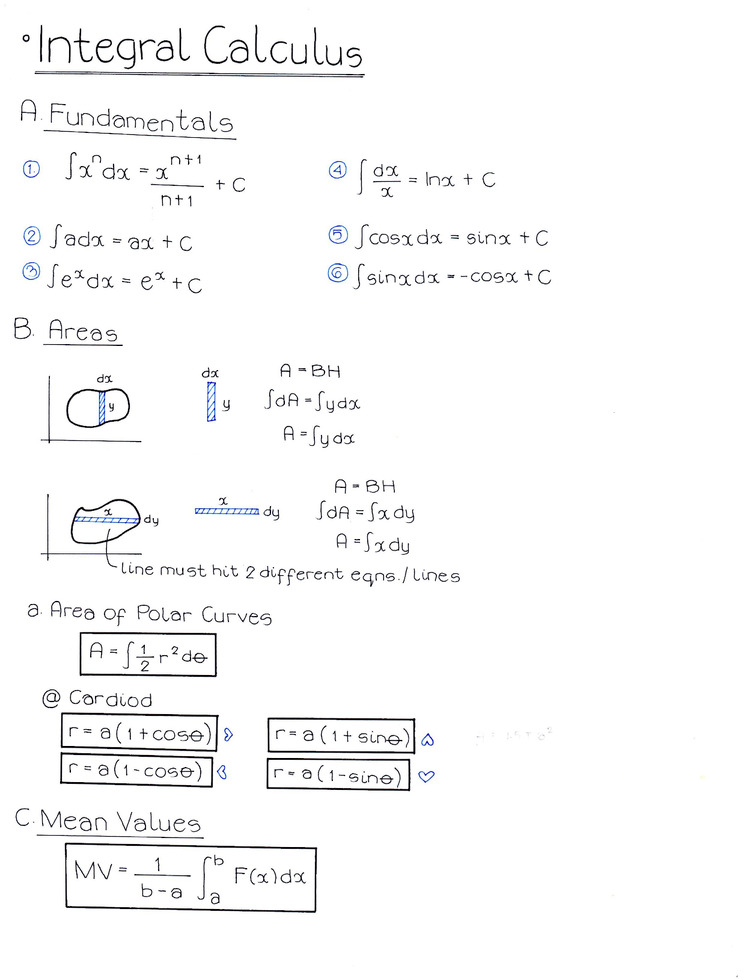 ° Integral Calculus
A. Fundamentals
① ∫xⁿdx = xⁿ⁺¹/n+1 + C
④ ∫dx/x = lnx + C
② ∫adx = ax + C
⑤ ∫cosxdx = sinx + C
③ ∫eˣdx = eˣ + C
⑥ ∫sinxdx = -cosx + C
B. Areas
dx
y
dx
y
A = BH
∫dA = ∫ydx
A = ∫ydx
x
dy
x
dy
A = BH
∫dA = ∫xdy
A = ∫xdy
line must hit 2 different eqns./lines
a. Area of Polar Curves
A = ∫ 1/2 r² dθ
@ Cardiod
r = a(1+cosθ)
r = a(1+sinθ)
r = a(1-cosθ)
r = a(1-sinθ)
C. Mean Values
MV = 1/b-a ∫ₐᵇ F(x)dx